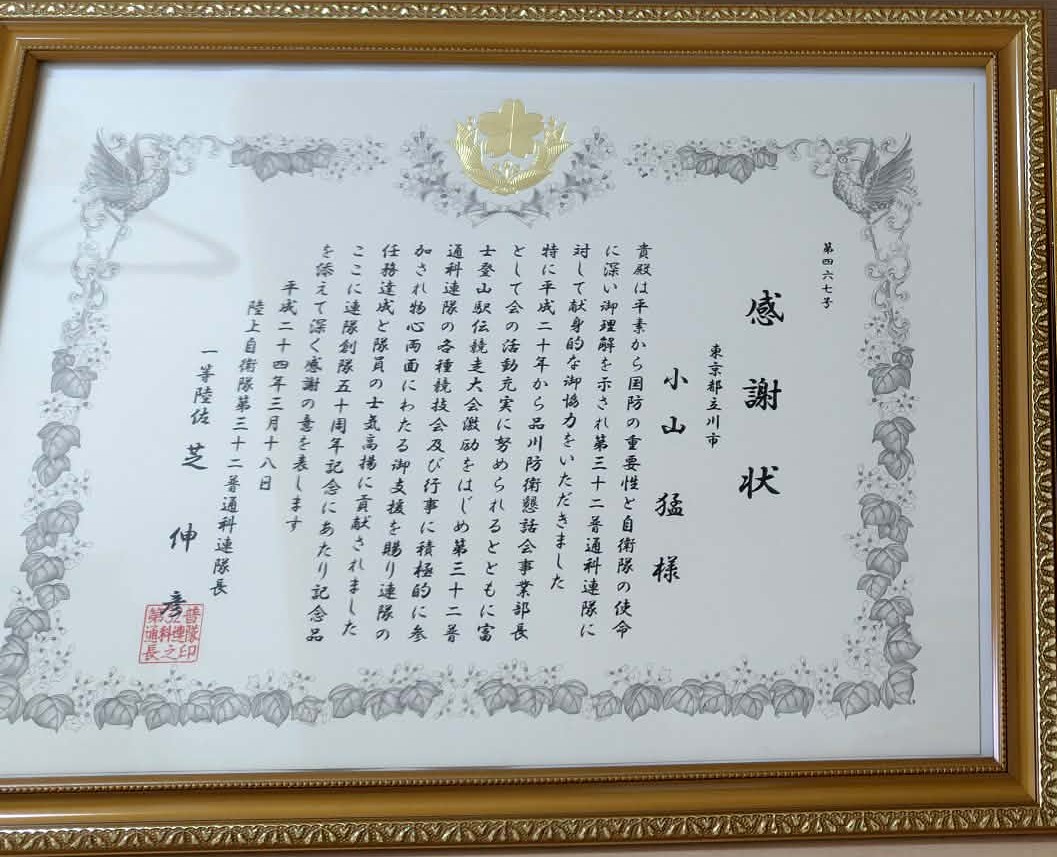 第四六七号
感謝状
東京都立川市
小山猛様
貴殿は平素から国防の重要性と自衛隊の使命
に深い御理解を示され第三十二普通科連隊に
対して献身的な御協力をいただきました
特に平成二十年から品川防衛懇話会事業部長
として会の活動充実に努められるとともに富
士登山駅伝競走大会激励をはじめ第三十二普
通科連隊の各種競技会及び行事に積極的に参
加され物心両面にわたる御支援を賜り連隊の
任務達成と隊員の士気高揚に貢献されました
ここに連隊創隊五十周年記念にあたり記念品
を添えて深く感謝の意を表します
平成二十四年三月十八日
陸上自衛隊第三十二普通科連隊長
一等陸佐 芝伸彦
普隊印
連之
科
第通長